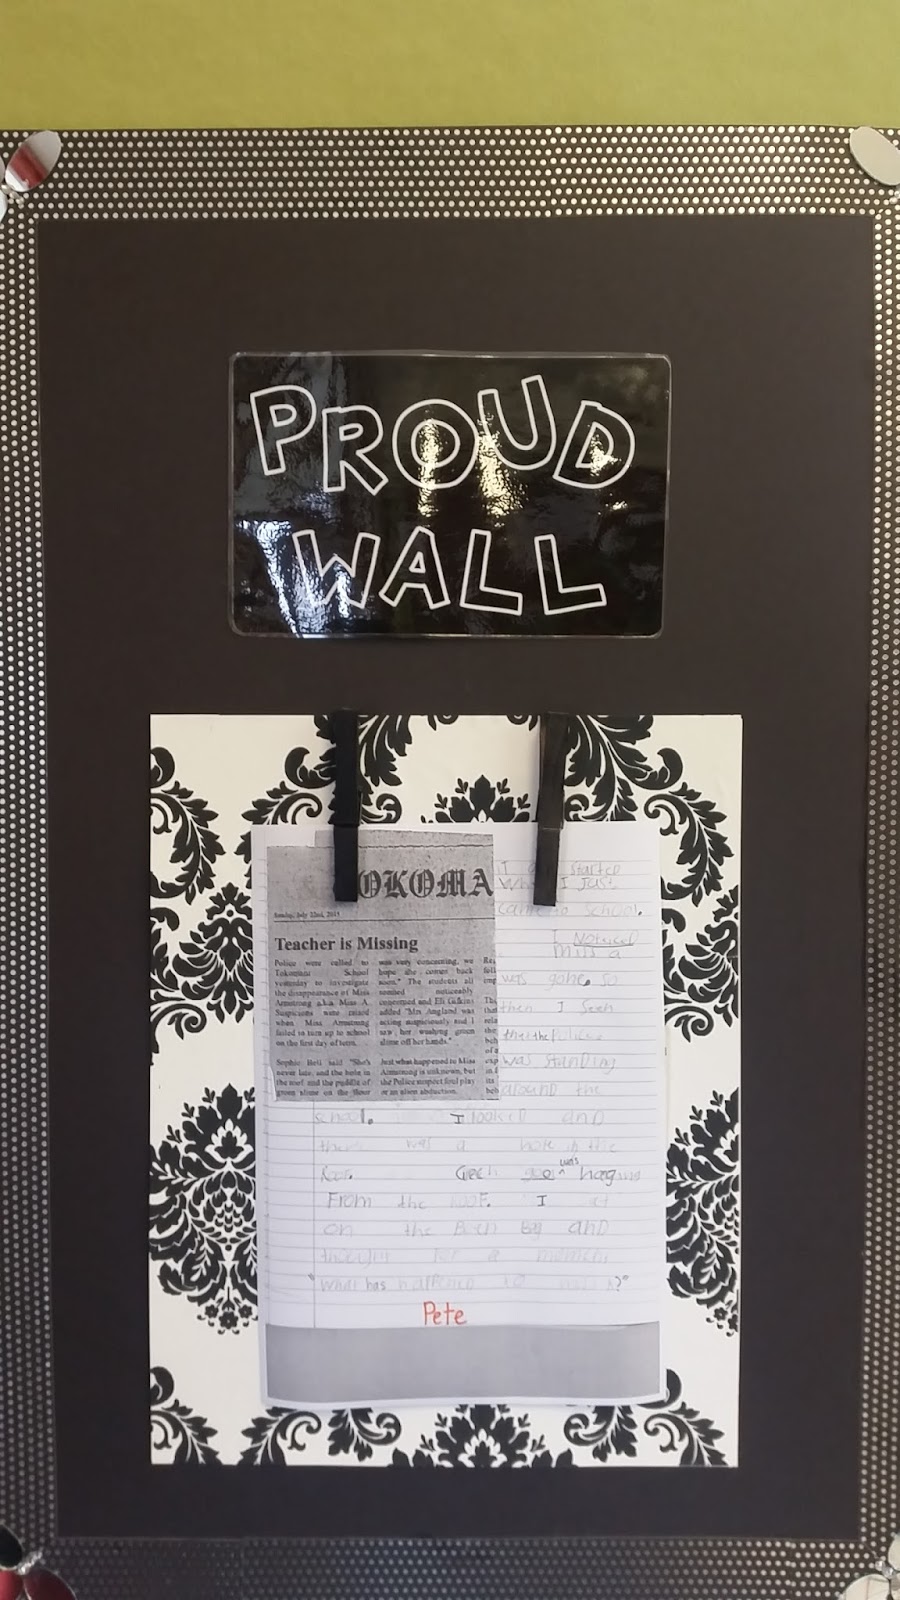 PROUD
WALL
OKOMA
Sunday, July 22nd, 2015
Teacher is Missing
Police were called to
Tokomaru School
yesterday to investigate
the disappearance of Miss
Armstrong a.k.a Miss A.
Suspicions were raised
when Miss Armstrong
failed to turn up to school
on the first day of term.
Sophie Bell said "She's
never late, and the hole in
the roof and the puddle of
green slime on the floor
was very concerning, we
hope she comes back
soon." The students all
seemed noticeably
concerned and Eli
added "Mrs Angland was
acting suspiciously and I
saw her washing green
slime off her hands."
Just what happened to Miss
Armstrong is unknown, but
the Police suspect foul play
or an alien abduction.
started
When I Just
came to School.
I Noticed
Miss a
was gone so
then I Seen
that the Police
was standing
around the
school. I looked and
there was a hole in the
Roof. Green goo was hanging
From the roof. I sat
on the Been Bag and
thought for a moment,
"What has happened to Miss A?"
Pete